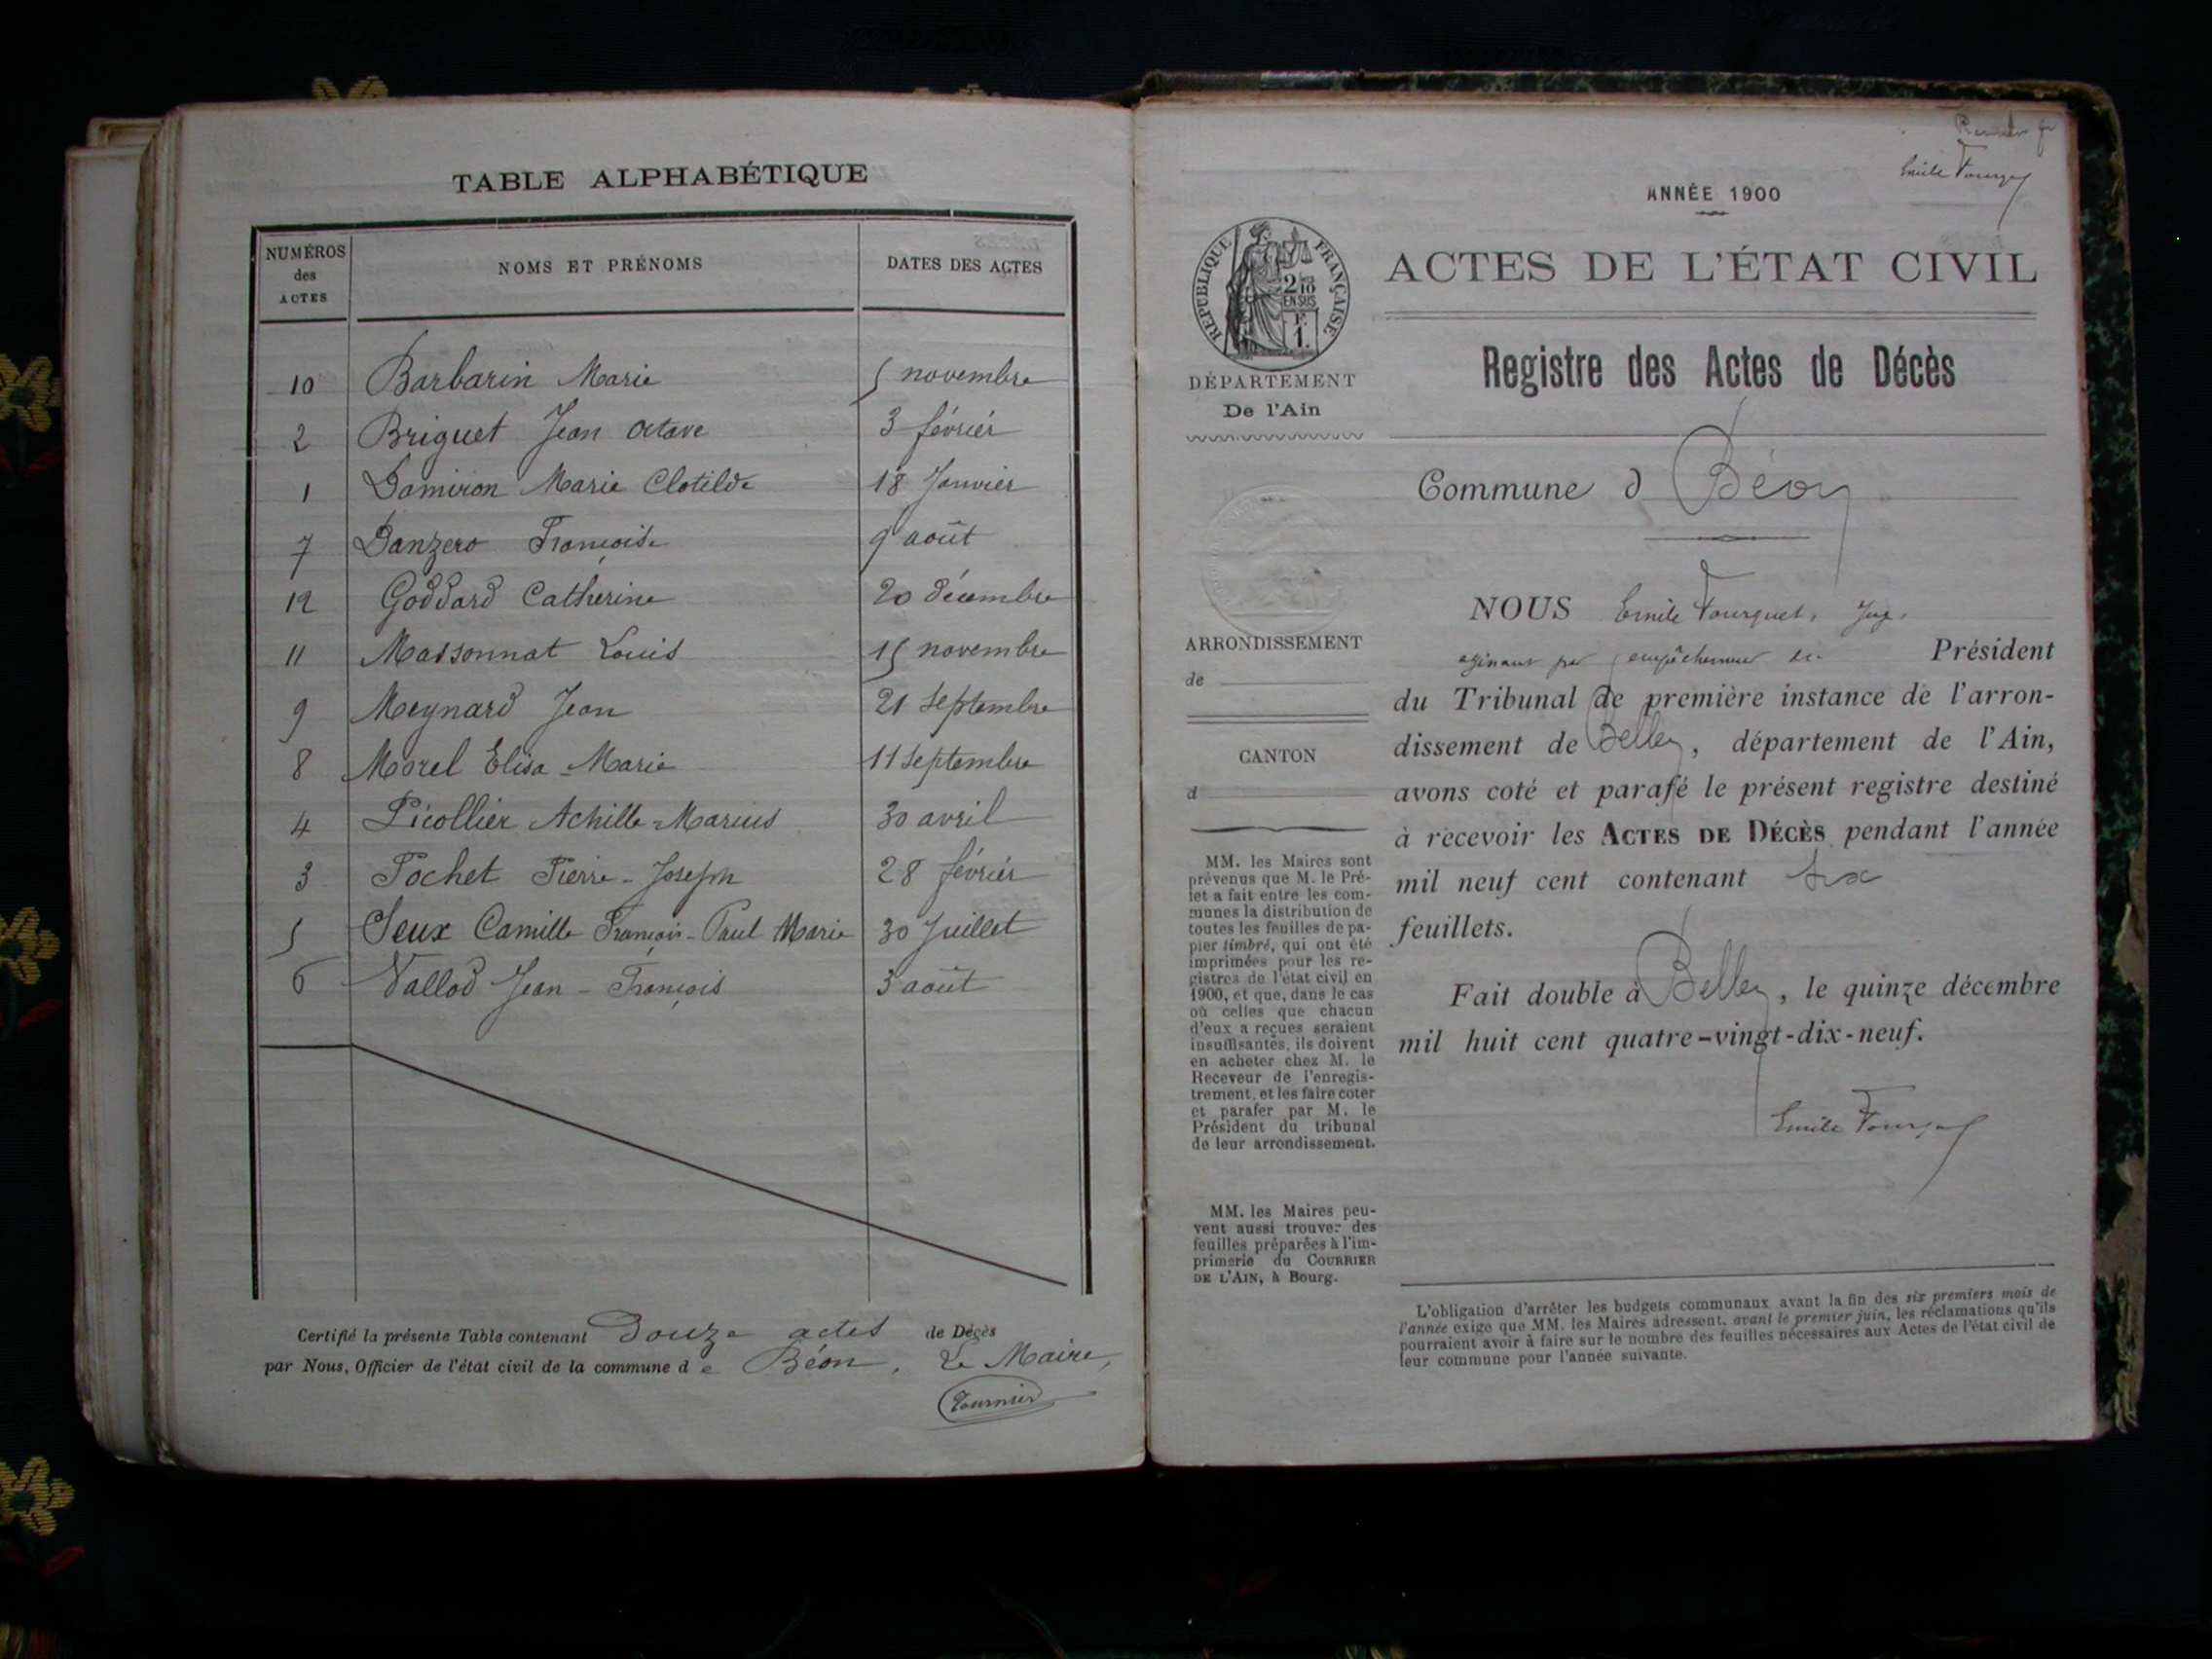 TABLE ALPHABÉTIQUE
NUMÉROS
des
ACTES
NOMS ET PRÉNOMS
DATES DES ACTES
10 Barbarin Marie 5 novembre
2 Briguet Jean Octave 3 février
1 Damiron Marie Clotilde 18 Janvier
7 Danzero Françoise 9 août
12 Goddard Catherine 20 décembre
11 Massonnat Louis 15 novembre
9 Meynard Jean 21 Septembre
8 Morel Elisa-Marie 11 Septembre
4 Picollier Achille-Marius 30 avril
3 Pochet Pierre-Joseph 28 février
5 Seux Camille François-Paul Marie 30 Juillet
6 Vallod Jean-François 3 août
Certifié la présente Table contenant Douze actes de Décès
par Nous, Officier de l'état civil de la commune de Béon, Le Maire,
Tournier
Premier
Emile Fourquet
ANNÉE 1900
RÉPUBLIQUE FRANÇAISE
2/10
EN SUS
F.
1.
ACTES DE L'ÉTAT CIVIL
Registre des Actes de Décès
DÉPARTEMENT
De l'Ain
Commune d Béon
ARRONDISSEMENT
de
CANTON
d
MM. les Maires sont
prévenus que M. le Pré-
fet a fait entre les com-
munes la distribution de
toutes les feuilles de pa-
pier timbré, qui ont été
imprimées pour les re-
gistres de l'état civil en
1900, et que, dans le cas
où celles que chacun
d'eux a reçues seraient
insuffisantes, ils doivent
en acheter chez M. le
Receveur de l'enregis-
trement, et les faire coter
et parafer par M. le
Président du tribunal
de leur arrondissement.
MM. les Maires peu-
vent aussi trouver des
feuilles préparées à l'im-
primerie du COURRIER
DE L'AIN, à Bourg.
NOUS Emile Fourquet, Juge
par empêchement du Président
du Tribunal de première instance de l'arron-
dissement de Belley, département de l'Ain,
avons coté et parafé le présent registre destiné
à recevoir les ACTES DE DÉCÈS pendant l'année
mil neuf cent contenant six
feuillets.
Fait double à Belley, le quinze décembre
mil huit cent quatre-vingt-dix-neuf.
Emile Fourquet
L'obligation d'arrêter les budgets communaux avant la fin des six premiers mois de
l'année exige que MM. les Maires adressent, avant le premier juin, les réclamations qu'ils
pourraient avoir à faire sur le nombre des feuilles nécessaires aux Actes de l'état civil de
leur commune pour l'année suivante.